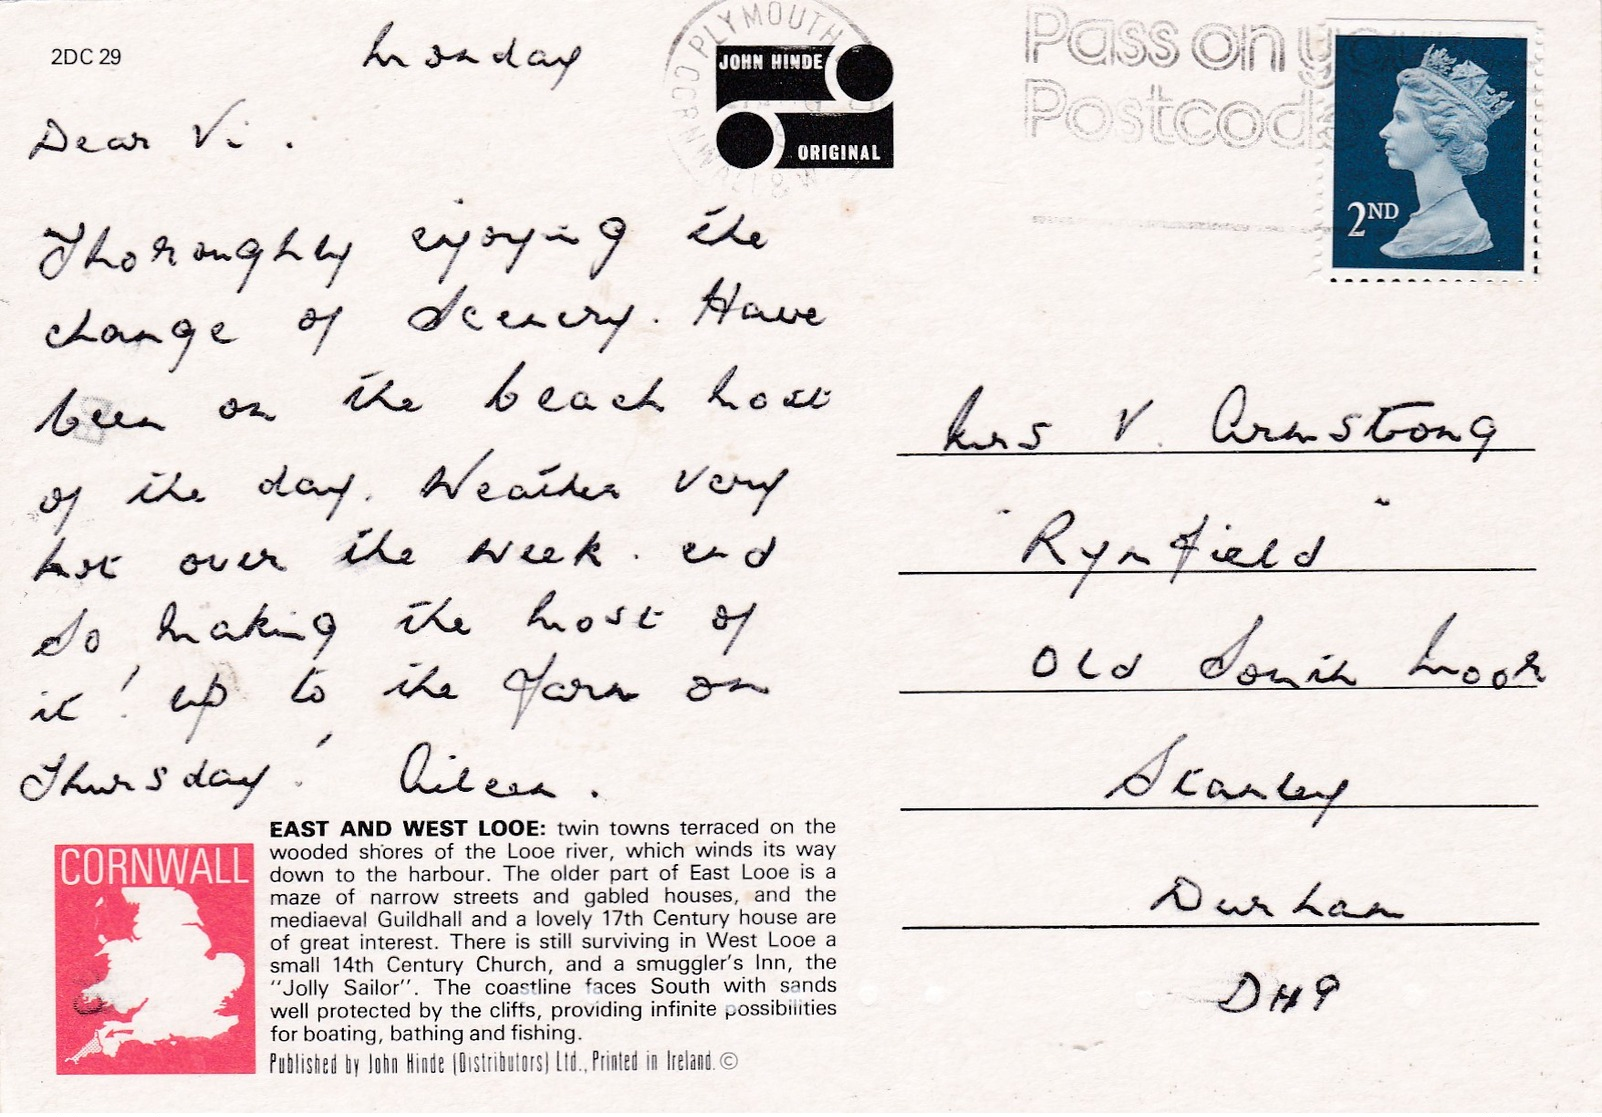 2DC 29
Monday
Dear Vi.
Thoroughly enjoying the
change of Scenery. Have
been on the beach most
of the day. Weather very
hot over the week. end
So making the most of
it! up to the farm on
Thursday! Aileen.
PLYMOUTH
CORNWALL &
JOHN HINDE
ORIGINAL
Pass on you
Postcod
2ND
Mrs V. Armstrong
"Rynfield"
Old South Moor
Stanley
Durham
DH9
CORNWALL
EAST AND WEST LOOE: twin towns terraced on the
wooded shores of the Looe river, which winds its way
down to the harbour. The older part of East Looe is a
maze of narrow streets and gabled houses, and the
mediaeval Guildhall and a lovely 17th Century house are
of great interest. There is still surviving in West Looe a
small 14th Century Church, and a smuggler's Inn, the
"Jolly Sailor". The coastline faces South with sands
well protected by the cliffs, providing infinite possibilities
for boating, bathing and fishing.
Published by John Hinde (Distributors) Ltd., Printed in Ireland. ©